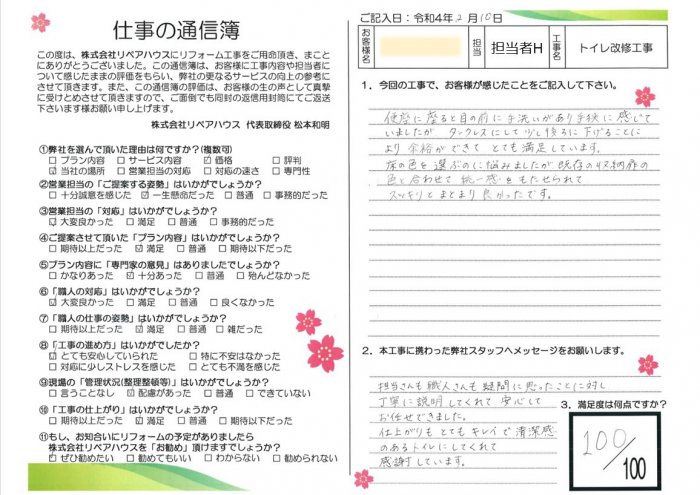 仕事の通信簿
この度は、株式会社リペアハウスにリフォーム工事をご用命頂き、まこと
にありがとうございました。この通信簿は、お客様に工事内容や担当者に
ついて感じたままの評価をもらい、弊社の更なるサービスの向上の参考に
させて頂きます。また、この通信簿の評価は、お客様の生の声として真摯
に受けとめさせて頂きますので、ご面倒でも同封の返信用封筒にてご返送
下さいます様お願い申し上げます。
株式会社リペアハウス 代表取締役 松本和明
①弊社を選んで頂いた理由は何ですか？(複数可)
□ プラン内容 □ サービス内容 ☑ 価格 □ 評判
☑ 当社の場所 □ 営業担当の対応 □ 対応の速さ □ 専門性
②営業担当の「ご提案する姿勢」はいかがでしょうか？
□ 十分誠意を感じた ☑ 一生懸命だった □ 普通 □ 事務的だった
③営業担当の「対応」はいかがでしょうか？
☑ 大変良かった □ 満足 □ 普通 □ 事務的だった
④ご提案させて頂いた「プラン内容」はいかがでしょうか？
□ 期待以上だった ☑ 満足 □ 普通 □ 期待以下だった
⑤プラン内容に「専門家の意見」はありましたでしょうか？
□ かなりあった ☑ 十分あった □ 普通 □ 殆んどなかった
⑥「職人の対応」はいかがでしょうか？
☑ 大変良かった □ 満足 □ 普通 □ 良くなかった
⑦「職人の仕事の姿勢」はいかがでしょうか？
□ 期待以上だった ☑ 満足 □ 普通 □ 雑だった
⑧「工事の進め方」はいかがでしたか？
☑ とても安心していられた □ 特に不安はなかった
□ 対応に少しストレスを感じた □ とても不満を感じた
⑨現場の「管理状況(整理整頓等)」はいかがでしょうか？
□ 言うことなし ☑ 配慮があった □ 普通 □ できていない
⑩「工事の仕上がり」はいかがでしょうか？
□ 期待以上だった ☑ 満足 □ 普通 □ 期待以下だった
⑪もし、お知合いにリフォームの予定がありましたら
株式会社リペアハウスを「お勧め」頂けますでしょうか？
☑ ぜひ勧めたい □ 勧めてもいい □ わからない □ 勧められない
ご記入日：令和4年2月10日
お客様名
担当 担当者H
工事名 トイレ改修工事
1．今回の工事で、お客様が感じたことをご記入して下さい。
便座に座ると目の前に手洗いがあり手狭に感じて
いましたが タンクレスにして少し後ろに下げることに
より余裕ができて とても満足しています。
床の色を選ぶのに悩みましたが既存の収納扉の
色と合わせて統一感をもたせられて
スッキリとまとまり良かったです。
2．本工事に携わった弊社スタッフへメッセージをお願いします。
担当さんも職人さんも疑問に思ったことに対し
丁寧に説明してくれて 安心して
お任せできました。
仕上がりも とてもキレイで清潔感
のあるトイレにしてくれて
感謝しています。
3．満足度は何点ですか？
100/100